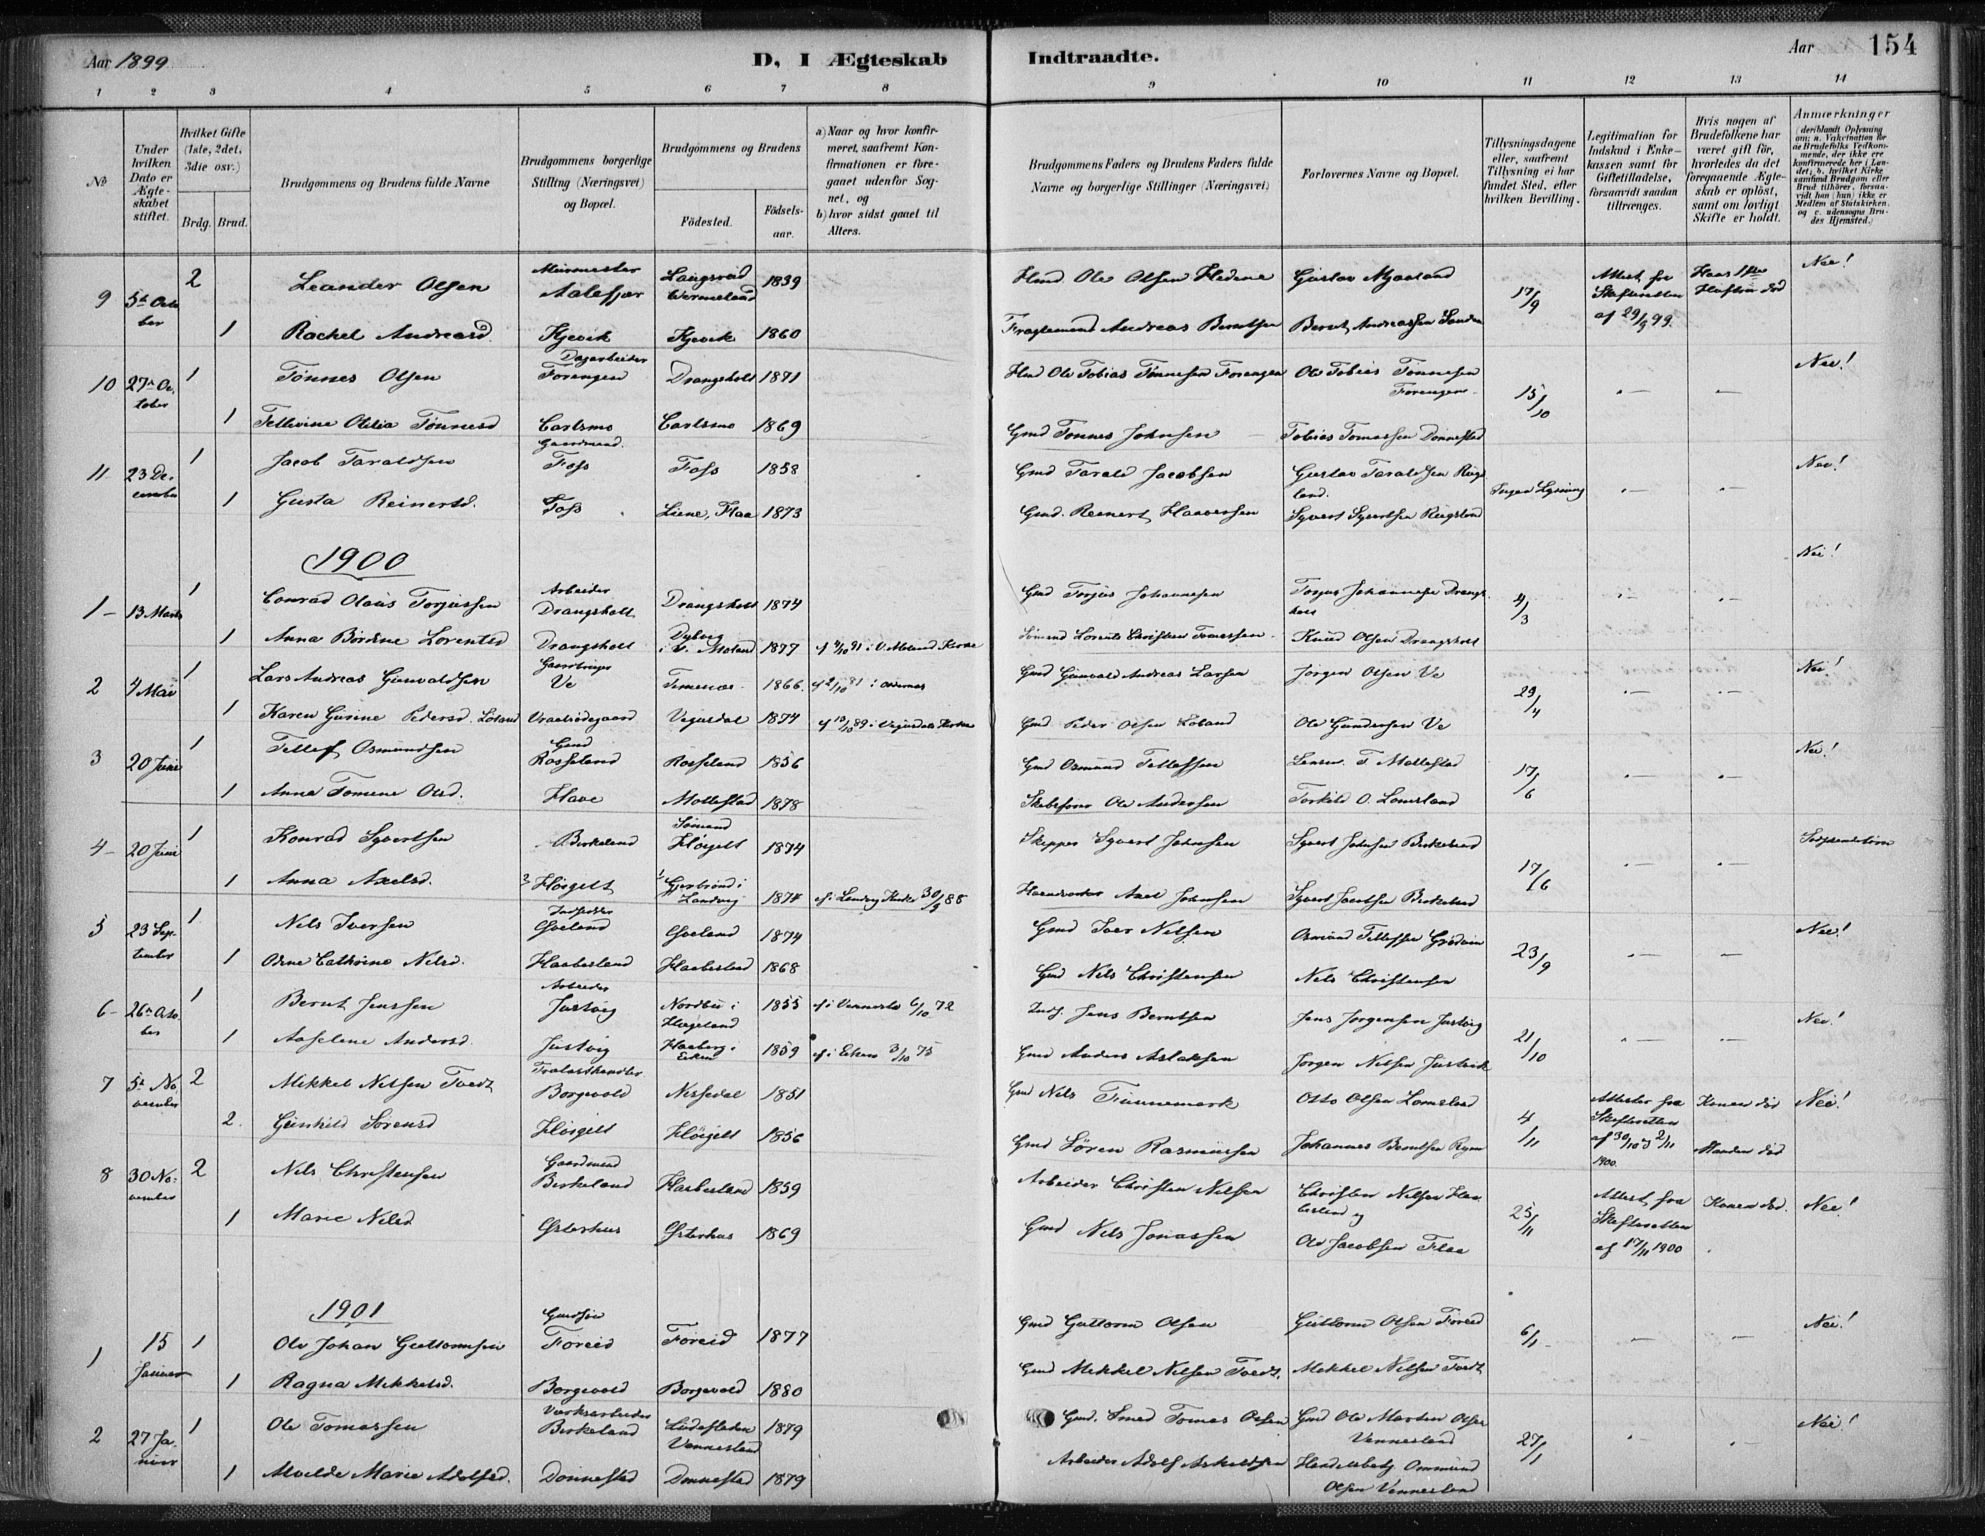 Aar 1899
D, I Ægteskab Indtraadte.
Aar 154
1 2 3 4 5 6 7 8 9 10 11 12 13 14
No
Under hvilken Dato er Ægteskabet stiftet.
Hvilket Gifte (1ste, 2det, 3die osv.)
Brdg. Brud.
Brudgommens og Brudens fulde Navne
Brudgommens borgerlige Stilling (Næringsvei) og Bopæl.
Brudgommens og Brudens
Fødested.
Fødselsaar.
a) Naar og hvor konfirmeret, saafremt Konfirmationen er foregaaet udenfor Sognet, og
b) hvor sidst gaaet til Alters.
Brudgommens Faders og Brudens Faders fulde Navne og borgerlige Stillinger (Næringsvei)
Forlovernes Navne og Bopæl.
Tillysningsdagene eller, saafremt Tillysning ei har fundet Sted, efter hvilken Bevilling.
Legitimation for Indskud i Enkekassen samt for Giftetilladelse, forsaavidt saadan tiltrænges.
Hvis nogen af Brudefolkene har været gift før, hvorledes da det foregaaende Ægteskab er opløst, samt om lovligt Skifte er holdt.
Anmerkninger (deriblandt Oplysning om: a. Vakcination for de Brudefolks Vedkommende, der ikke ere konfirmerede her i Landet; b. hvilket Kirkesamfund Brudgom eller Brud tilhører, forsaavidt han (hun) ikke er Medlem af Statskirken, og c. udensogns Brudes Hjemsted.)
9 5te October 2 Leander Olsen Murmester Aalefjær Langserud Wermeland 1839 Hmd Ole Olsen Hedene Gustav Ajaaland 17/9 Attest fra Skifteretten af 29/9 99. Hans 1ste Hustru død Nei!
1 Rachel Andreasd Kjevik Kjevik 1860 Andreas Berntsen Bernt Andreassen
10 27de October 1 Tønnes Olsen Dagarbeider Forengen Drangsholt 1871 Hmd Ole Tobias Tønnesen Forengen Ole Tobias Tønnesen Forengen 15/10 - - Nei!
1 Tellevine Otilia Tønnesd Carlsmo Carlsmo 1869 Gmd Tønnes Johnsen Tobias Tomassen Donnestad
11 23 December 1 Jacob Taraldsen Gaardmand Foss Foss 1858 Gmd Tarald Jacobsen Gustav Taraldsen Rugsland. Ingen Lysning - - Nei!
1 Gusta Reinertsd. Foss Liene, Flaa 1873 Gmd. Reinert Haaversen Syvert Syvertsen Rugsland
1900 Nei!
1 13 Marts 1 Conrad Olaus Torjussen Arbeider Drangsholt Drangsholt 1874 Gmd Torjus Johannesen Torjus Johannesen Drangsholt 4/3 - -
1 Anna Bordine Lorentsd Drangsholt Dybvig i V. Moland 1877 cf 4/10 91 i V. Moland Kirke Sømand Lorents Christian Tomassen Knud Olsen Drangsholt
2 4 Mai 1 Lars Andreas Gunvaldsen Gaardbruger Ve Timenes 1866. cf 2/10 81 i Gmd Gunvald Andreas Larsen Jørgen Olsen Ve 29/4 - - Nei!
1 Karen Gurine Pedersd. Loland Vraalsødegaard Vegusdal 1874 cf 13/10 89 i Vegusdals Kirke Gmd Peder Olsen Loland Ole Gundersen Ve
3 20 Juni 1 Tellef Osmundsen Gmd Rosseland Rosseland 1856 Gmd Osmund Tellefsen Lensm. T. Mollestad 17/6 - - Nei!
1 Anna Tomine Olsd. Have Mollestad 1878 Ole Andersen Torkild O. Lomsland
4 20 Juni 1 Konrad Syvertsen Birkeland Sømand Høigelt 1874 Skipper Syvert Johnsen Syvert Johnsen Birkeland 17/6 - - Sødskendebørn
1 Anna Axelsd. Høigelt Gjerbrønd i Landvig 1874 cf i Landvig Kirke 30/9 88 Haandverker Axel Johnsen Syvert Jacobsen Birkeland
5 23 September 1 Nils Iversen Indsidder Gveland Gveland 1874 Gmd Iver Nilsen Osmund Tellefsen 23/9 - - Nei!
1 Osene Cathrine Nilsd. Haaberland Haaberland 1868 Gmd Nils Christensen Nils Christensen
6 26de October 1 Bernt Jensen Arbeider Justvig Nordbu i Høgeland 1855 cf i Vennesla 6/10 72 Inds. Jens Berntsen Jens Jørgensen Justvig 21/10 - - Nei!
1 Aaselene Andersd. Justvig Haaberg i Eiken 1859 cf i Eiken 3/10 75 Gmd Anders Aslaksen Jørgen Nilsen Justvik
7 5te November 2 Mikkel Nilsen Tvedt Trælasthandler Borgevold Nissedal 1851 Gmd Nils Finnemark Otto Olsen Lomsland 4/11 Attester fra Skifteretten af 30/10 og 2/11 1900. Konen død Nei!
2. Gunhild Sørensd Høigelt Høigelt 1856 Gmd Søren Rasmussen Johannes Berntsen Manden død
8 30 November 2 Nils Christensen Gaardmand Birkeland Haaberland 1859 Arbeider Christen Nilsen Christen Nilsen Haaberland og 25/11 Attest fra Skifteretten af 17/11 1900 Konen død. Nei!
1 Marie Nilsd Østerhus Østerhus 1869 Gmd Nils Jonassen Ole Jacobsen Flaa
1901
1 15 Januar 1 Ole Johan Guttormsen Gmdsøn Foreid Foreid 1877 Gmd Guttorm Olsen Guttorm Olsen Foreid 6/1 - - Nei!
1 Ragna Mikkelsd. Borgevold Borgevold 1880 Gmd Mikkel Nilsen Tvedt. Mikkel Nilsen Tvedt
2 27 Januar 1 Ole Tomassen Værksarbeider Birkeland Vennesland 1879 Gmd. Smed Tomas Olsen Gmd Ole Martin Olsen Vennesland 27/1 - - Nei!
1 Alvilde Marie Adolfsd. Donnestad Donnestad 1879 Arbeider Adolf Askildsen Handelsbetj. Ommund Olsen Vennesland